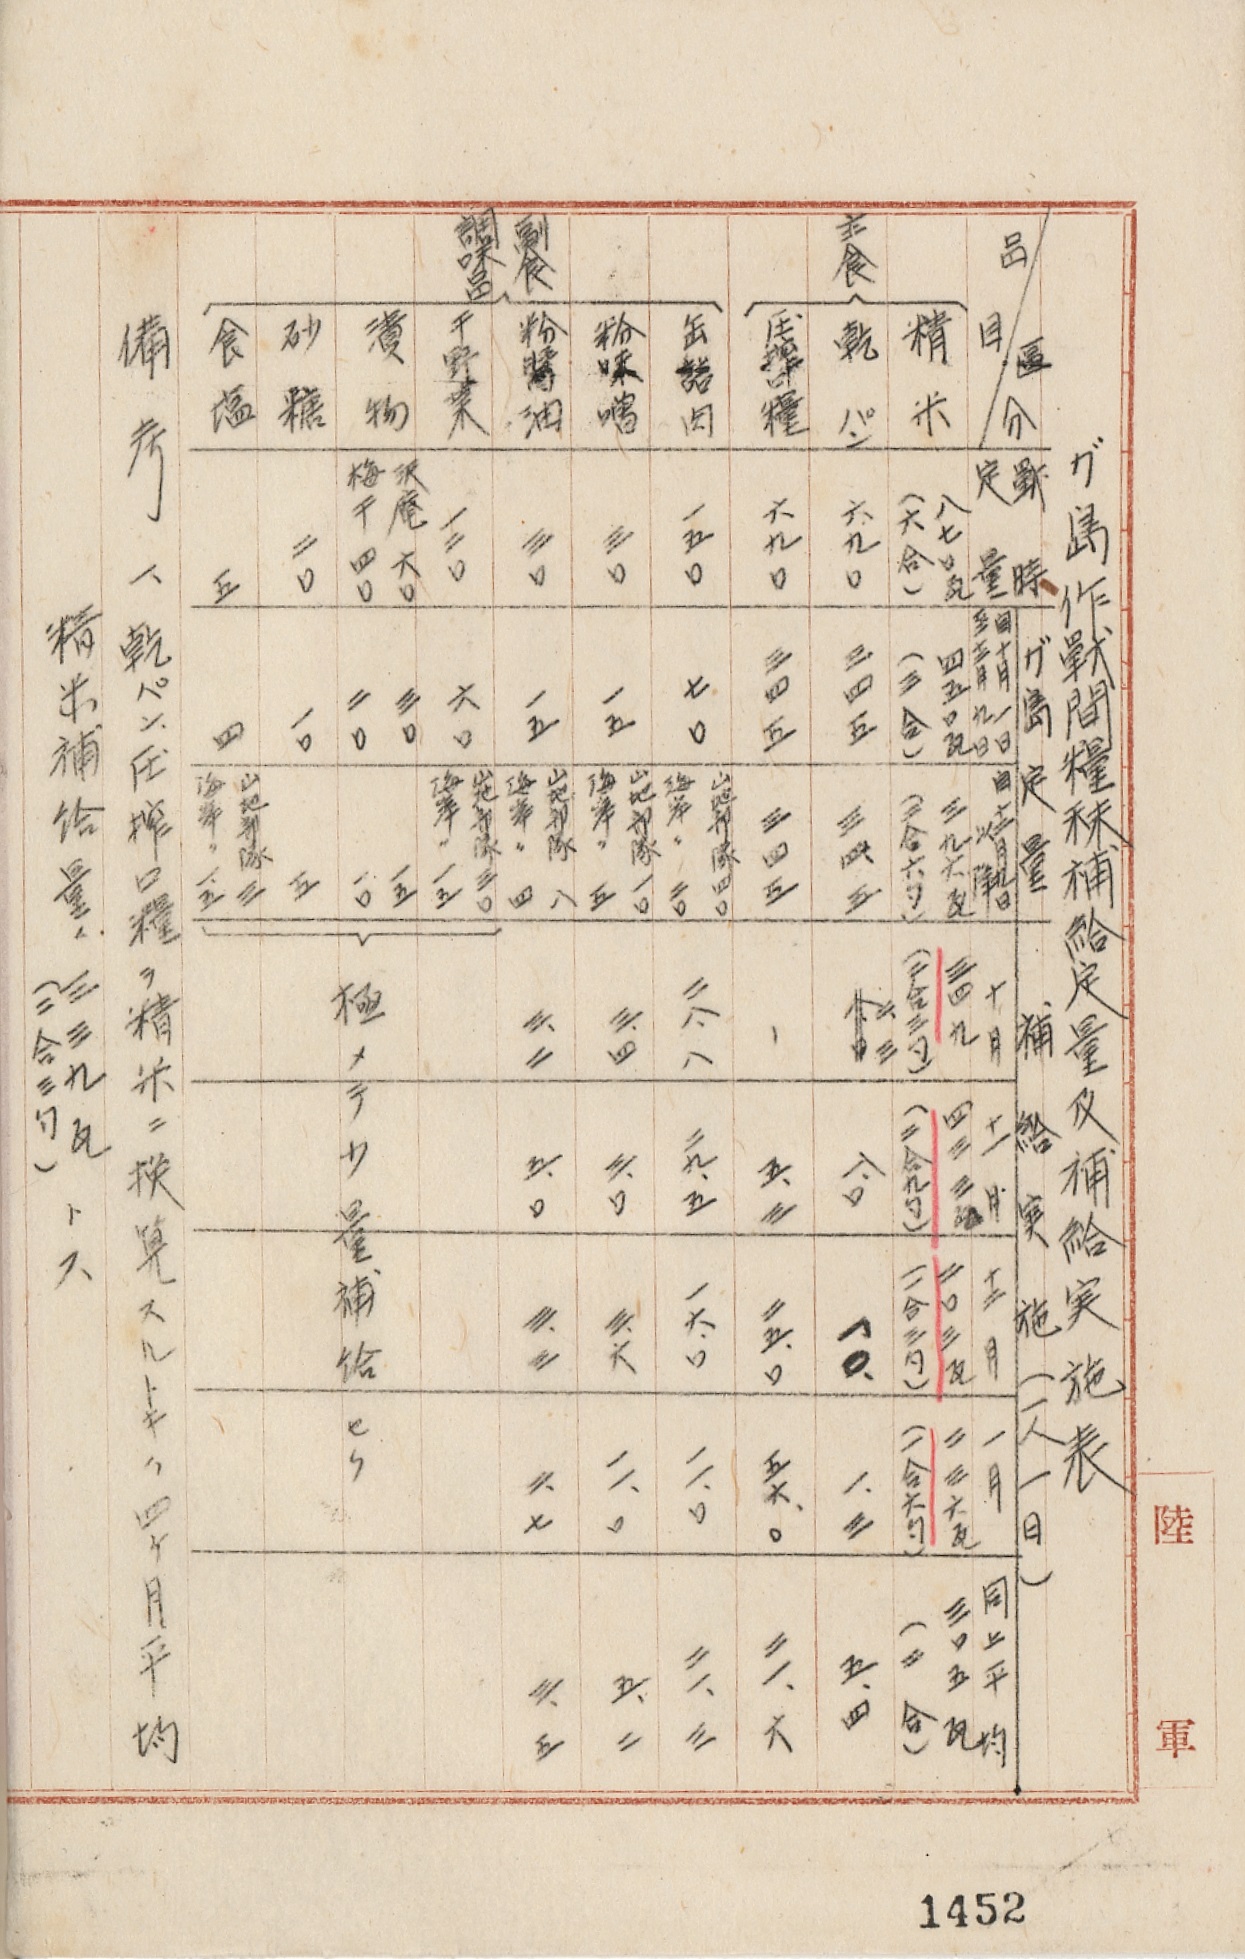 ガ島作戰間糧秣補給定量及補給実施表
區分
品目
戰時定量
ガ島定量
自十月一日
至十二月九日
自十二月九日
以降
補給実施(一人一日)
十月
十一月
十二月
一月
同上平均
主食
精米
八七〇瓦
(六合)
四五〇瓦
(三合)
三九六瓦
(二合六勺)
三四九
(二合三勺)
四三三瓦
(二合九勺)
二〇三瓦
(一合三勺)
二三六瓦
(一合六勺)
三〇五瓦
(二合)
乾パン
六九〇
三四五
三四五
八〇
一〇、
一、三
五、四
圧搾口糧
六九〇
三四五
三四五
五、三
二五、〇
五六、〇
二一、六
副食
調味品
缶詰肉
一五〇
七〇
山地部隊 四〇
海岸〃 二〇
二八、八
二九、五
一六、〇
一一、〇
二一、三
粉味噌
三〇
一五
山地部隊 一〇
海岸〃 五
三、四
三、〇
三、六
一一、〇
五、二
粉醤油
三〇
一五
山地部隊 八
海岸〃 四
三、二
五、〇
三、三
二、七
三、五
干野菜
一二〇
六〇
山地部隊 三〇
海岸〃 一五
漬物
沢庵 六〇
梅干 四〇
三〇
二〇
一五
一〇
砂糖
二〇
一〇
五
食塩
五
四
山地部隊 三
海岸〃 一、五
極メテ少量補給セリ
備考
一、乾パン、圧搾口糧ヲ精米ニ換算スルトキハ四ケ月平均
精米補給量ハ、三三九瓦
(二合三勺)
トス
陸軍
1452